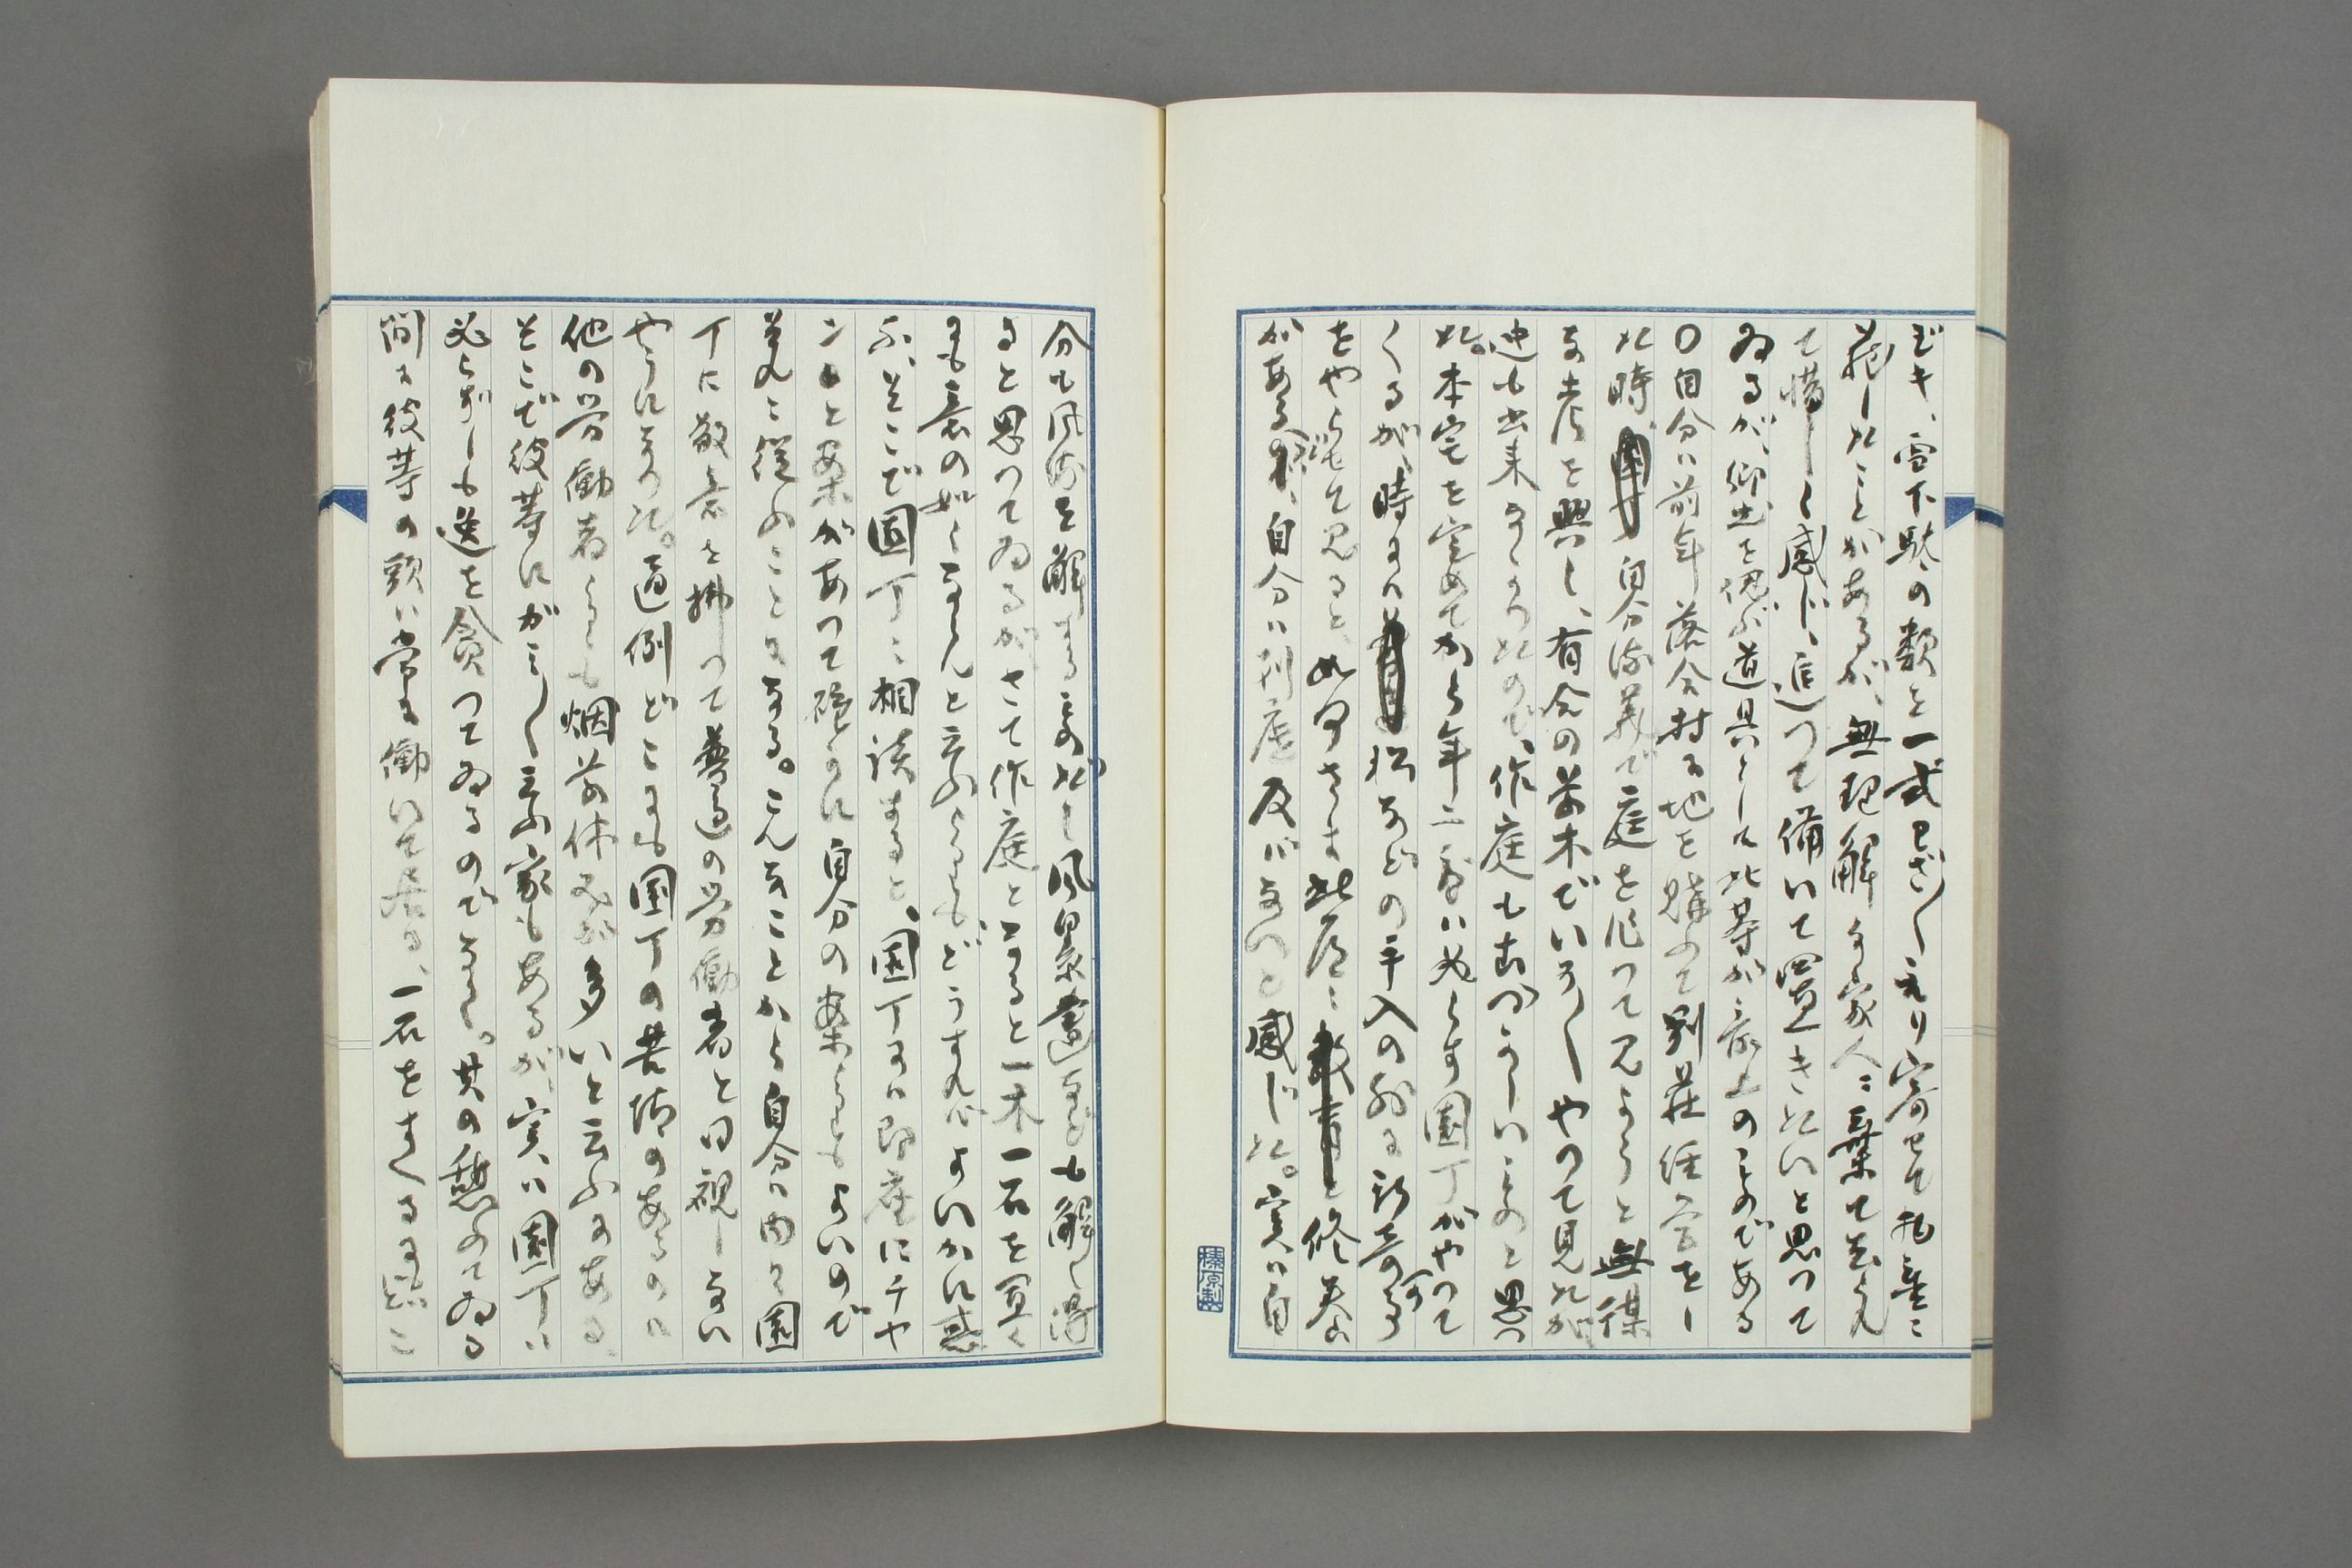 ビキ、雪下駄の類と一式わざ〳〵元り寄せて物置に
蔵したことがあるが、無理解な家人に棄てゝ
て惜しく感じ、追つて備いて置きたいと思つて
ゐるが、郷土を偲ぶ道具としては此等が最上のものである
〇自分は前年落合村に地を購ふて別荘経営をし
た時、自分流義で庭を作つて見ようと無謀
な考を興し、有合の苗木でいろ〳〵やつて見たが
迚も出来なかつたので、作庭もむづかしいものと思つ
た。本宅を定めてから年二度は必らず園丁がやつて
くるが、時には松などの手入の外に
をやらせて見ると、如何さま此道に修養の
がある、自分は到底及ばないと感じた。実は自
分も風流を解するものだし風景画なども解し得
ると思つてゐるがさて作庭となると一木一石を置く
にも意の如くならんと云ふよりもどうすればよいかに惑
ふ、そこで園丁に相談すると、園丁には即座にチヤ
ンと案があつて確かに自分の案よりもよいので
夫れに従ふことになる。こんなことから自分は内々園
丁に敬意を拂つて普通の労働者と同視しない
やうになつた。通例どこにも園丁の苦情のあるのは
他の労働者よりも烟草休みが多いと云ふにある
そこで彼等にがみ〳〵云ふ家もあるが、実は園丁は
必らずしも送を貪つてゐるのでない。其の憩ふてゐる
間に彼等の頭は常に働いて居る、一石をすへるにもどこ
榛原製